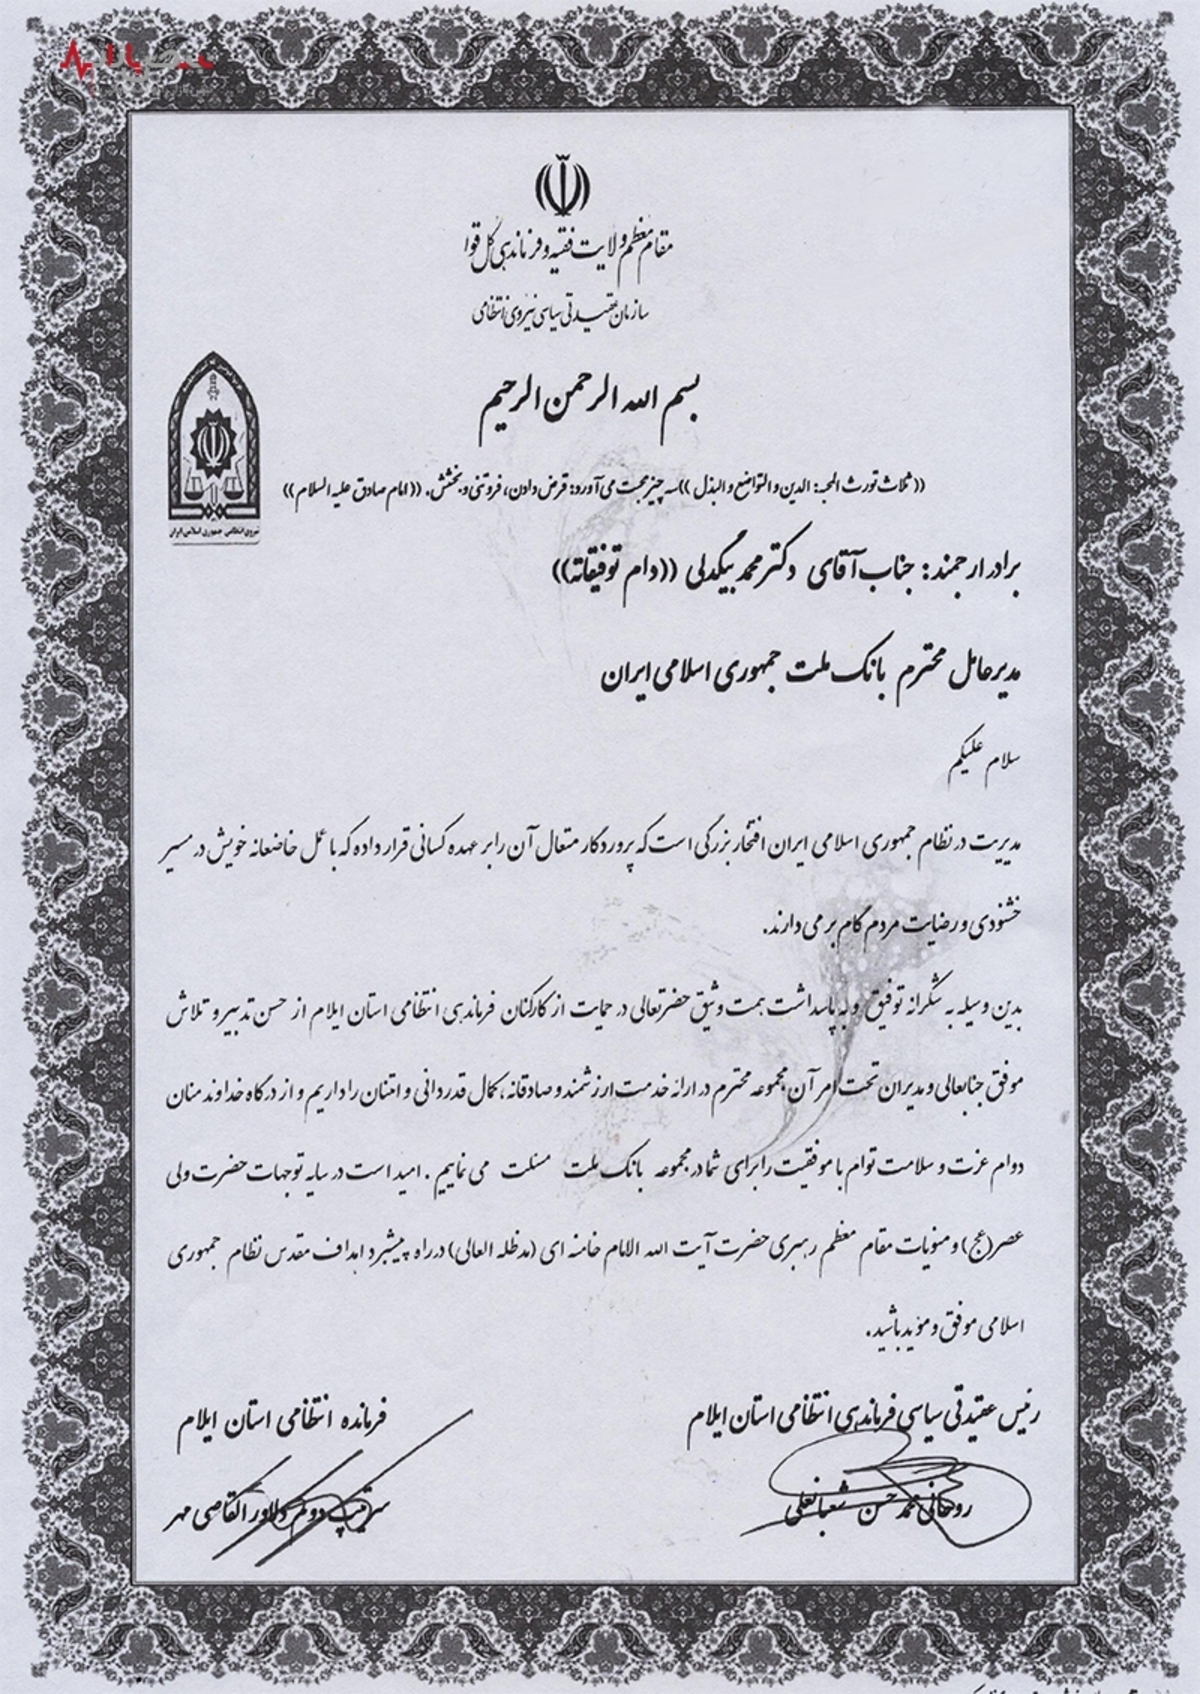 مقام معظم ولایت فقیه و فرماندهی کل قوا
سازمان عقیدتی سیاسی نیروی انتظامی
بسم الله الرحمن الرحیم
((ثلاث تورث المحبه: الدین و التواضع و البذل)) سه چیز محبت می آورد: قرض دادن، فروتنی و بخشش. ((امام صادق علیه السلام))
نیروی انتظامی جمهوری اسلامی ایران
برادر ارجمند: جناب آقای دکتر محمد بیگدلی ((دام توفیقاته))
مدیرعامل محترم بانک ملت جمهوری اسلامی ایران
سلام علیکم
مدیریت در نظام جمهوری اسلامی ایران افتخار بزرگی است که پروردگار متعال آن را بر عهده کسانی قرار داده که با عمل خاضعانه خویش در مسیر
خشنودی و رضایت مردم گام بر می دارند.
بدین وسیله به شکرانه توفیق و به پاسداشت همت وثیق حضرتعالی در حمایت از کارکنان فرماندهی انتظامی استان ایلام از حسن تدبیر و تلاش
موفق جنابعالی و مدیران تحت امر آن مجموعه محترم در ارائه خدمت ارزشمند و صادقانه، کمال قدردانی و امتنان را داریم و از درگاه خداوند منان
دوام عزت و سلامت توام با موفقیت را برای شما در مجموعه بانک ملت مسئلت می نماییم. امید است در سایه توجهات حضرت ولی
عصر(عج) و منویات مقام معظم رهبری حضرت آیت الله الامام خامنه ای (مدظله العالی) در راه پیشبرد اهداف مقدس نظام جمهوری
اسلامی موفق و موید باشید.
رئیس عقیدتی سیاسی فرماندهی انتظامی استان ایلام
روحانی محمد حسن شعبانعلی
فرمانده انتظامی استان ایلام
سرتیپ دوم دلاور القاصی مهر